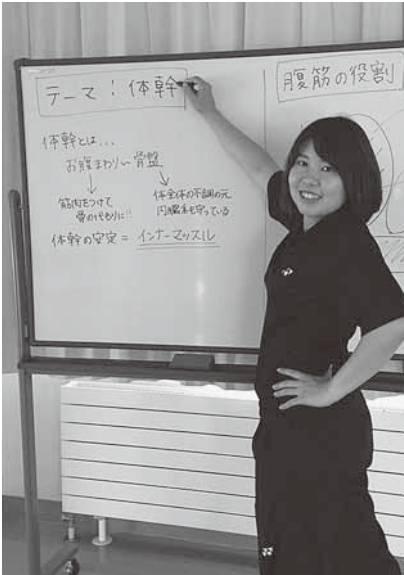 テーマ:体幹
体幹とは...
お腹まわり〜骨盤
筋肉をつけて
骨の代わりに!!
体全体の不調の元
内臓を守っている
体幹の安定=インナーマッスル
腹筋の役割